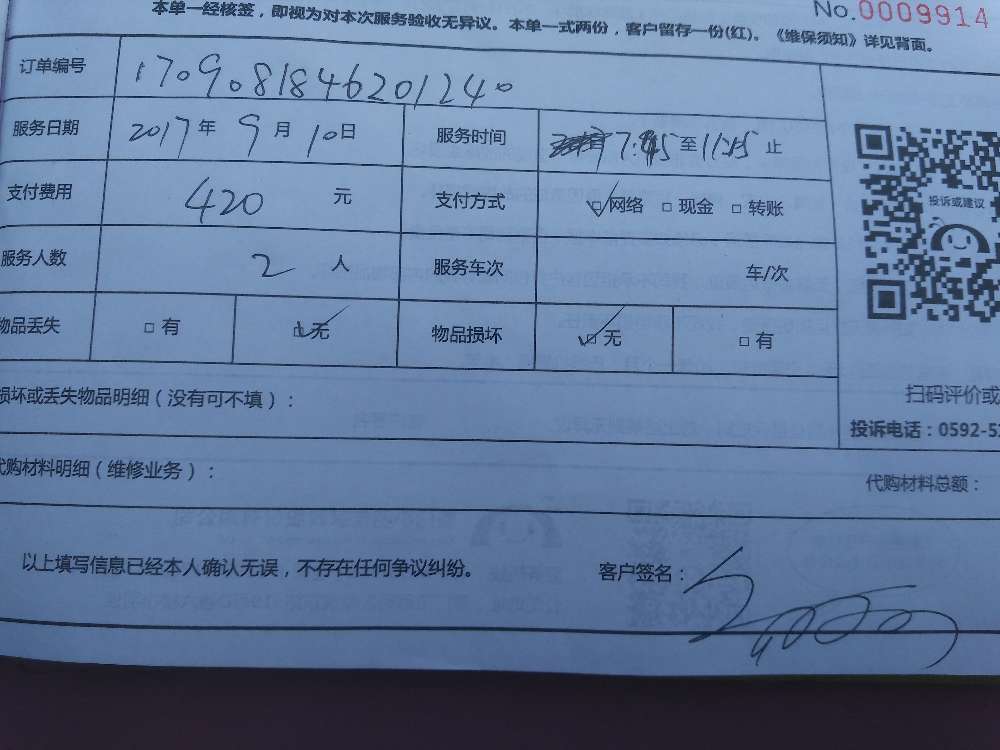 No.0009914
本单一经核签，即视为对本次服务验收无异议。本单一式两份，客户留存一份(红)。《维保须知》详见背面。
订单编号 1709081846201240
服务日期 2017年9月10日 服务时间 7:45至11:45止
支付费用 420 元 支付方式 ☑网络 □现金 □转账
投诉或建议
服务人数 2 人 服务车次 车/次
物品丢失 □有 ☑无 物品损坏 ☑无 □有
损坏或丢失物品明细（没有可不填）：
扫码评价或
投诉电话：0592-5
代购材料明细（维修业务）： 代购材料总额：
以上填写信息已经本人确认无误，不存在任何争议纠纷。 客户签名：